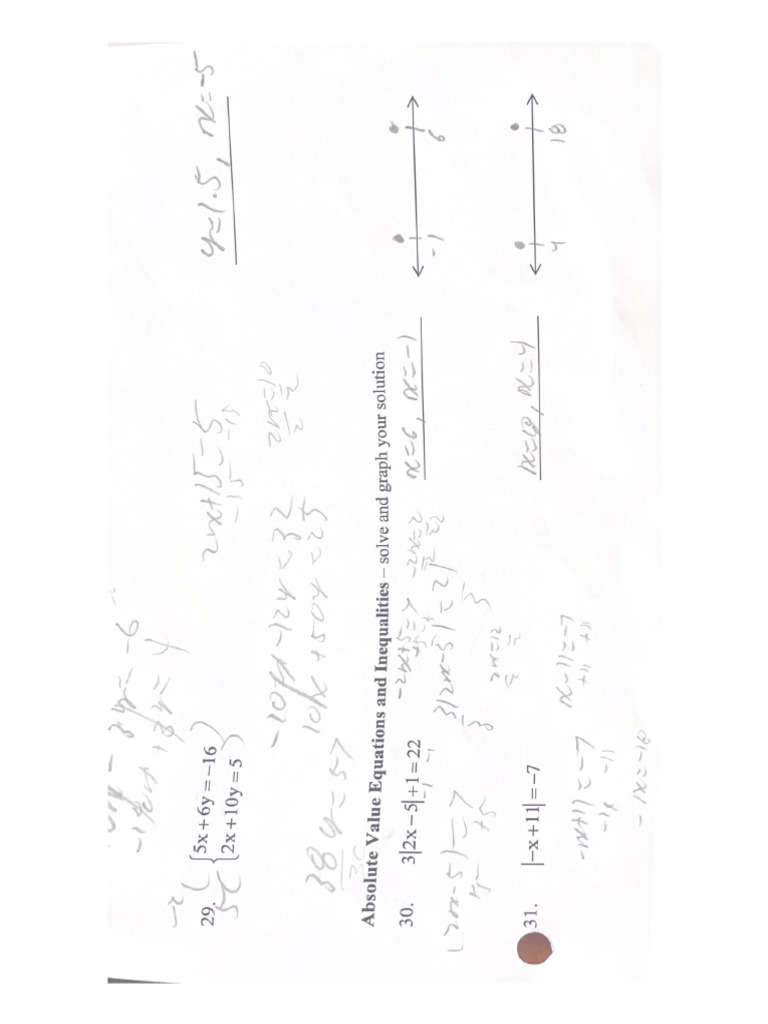 -6
4
29. { 5x + 6y = -16
2x + 10y = 5
-2(
5(
y=1.5, x=-5
2x+15=5
-15 -15
-10x-12y=32
10x+50y=25
2x=-10
2 2
38y=57
Absolute Value Equations and Inequalities – solve and graph your solution
30. 3|2x – 5| + 1 = 22
-1 -1
3|2x-5|=21
3 3
|2x-5|=7
+5 +5
2x=12
2 2
-2x+5=7
-2x=2
x=6, x=-1
-1 6
31. |–x + 11| = –7
-x+11=-7
-11 -11
-1x=-18
x-11=-7
+11 +11
x=18, x=4
4 18